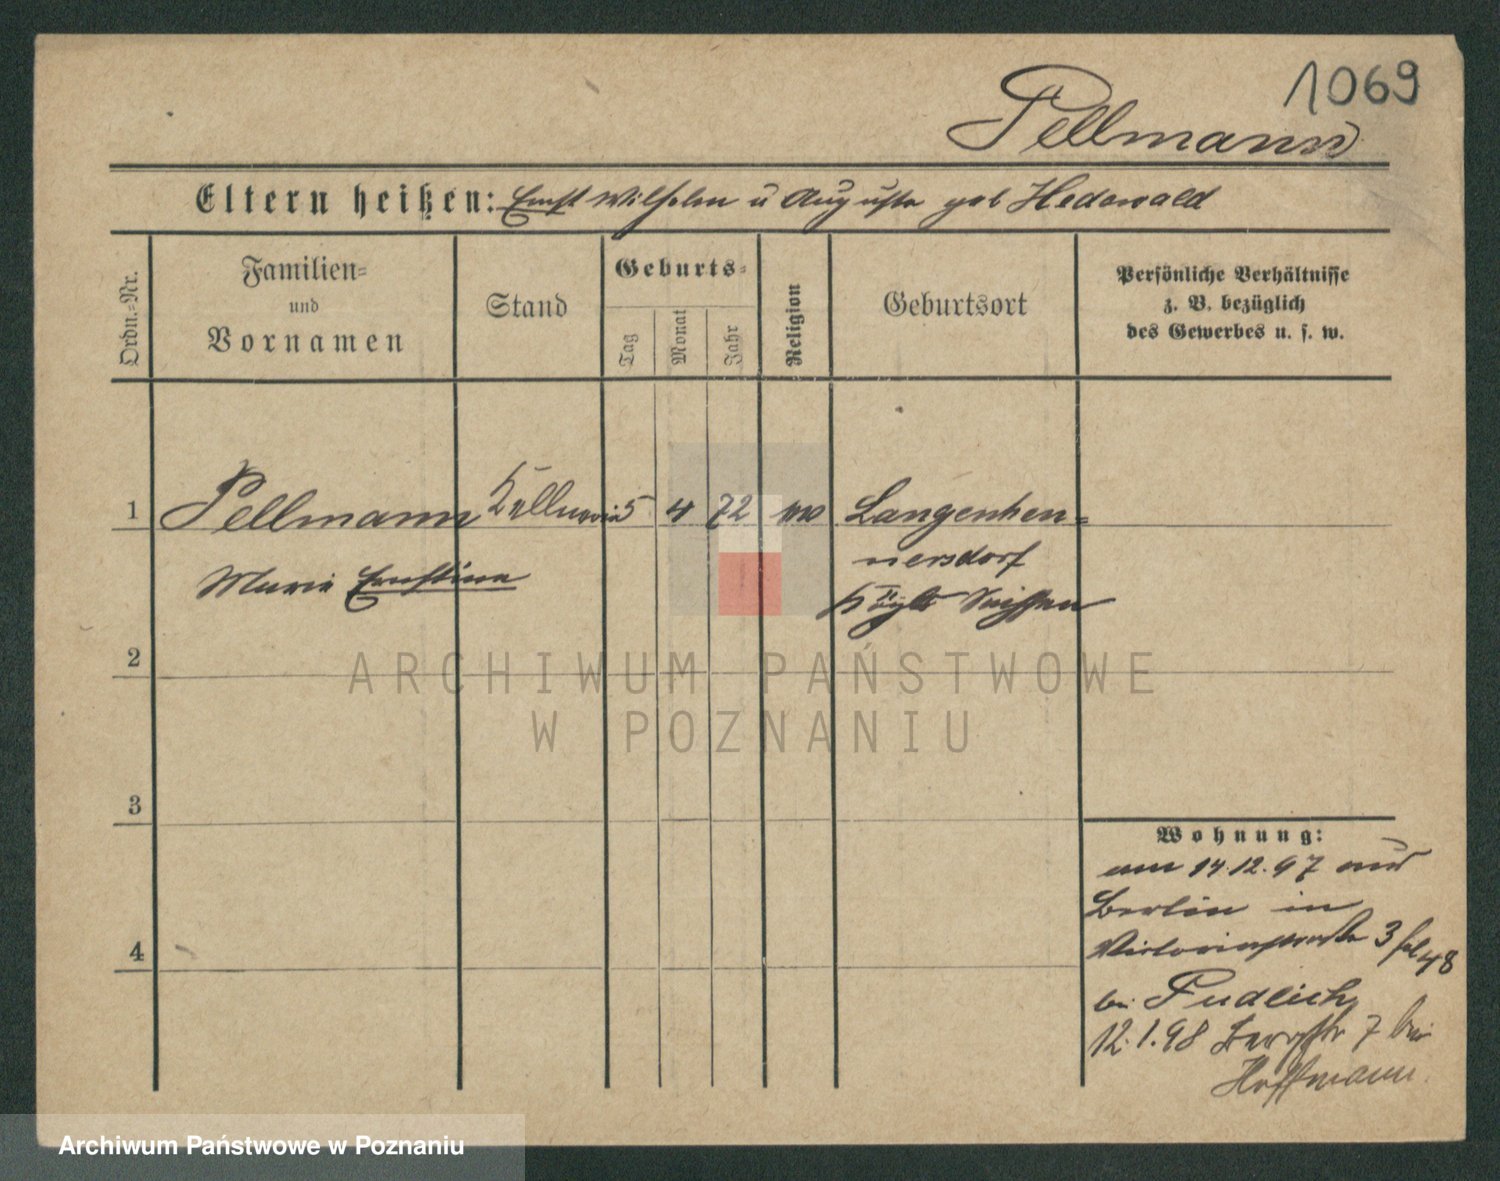 1069
Pellmann
Eltern heißen: Ernst Wilhelm u Auguste geb Hedewald
Ordn.-Nr.
Familien-
und
Vornamen
Stand
Geburts-
Tag
Monat
Jahr
Religion
Geburtsort
Persönliche Verhältnisse
z. B. bezüglich
des Gewerbes u. s. w.
1 Pellmann Kellnerin 5 4 72 Langenhen-
Marie Ernstine nersdorf
2
3
4
Wohnung:
am 14.12.97 aus
Berlin in
Victoriastraße 3
bei Pudlich
12.1.98 Bergstr 7 bei
Hoffmann.
ARCHIWUM PAŃSTWOWE
W POZNANIU
Archiwum Państwowe w Poznaniu